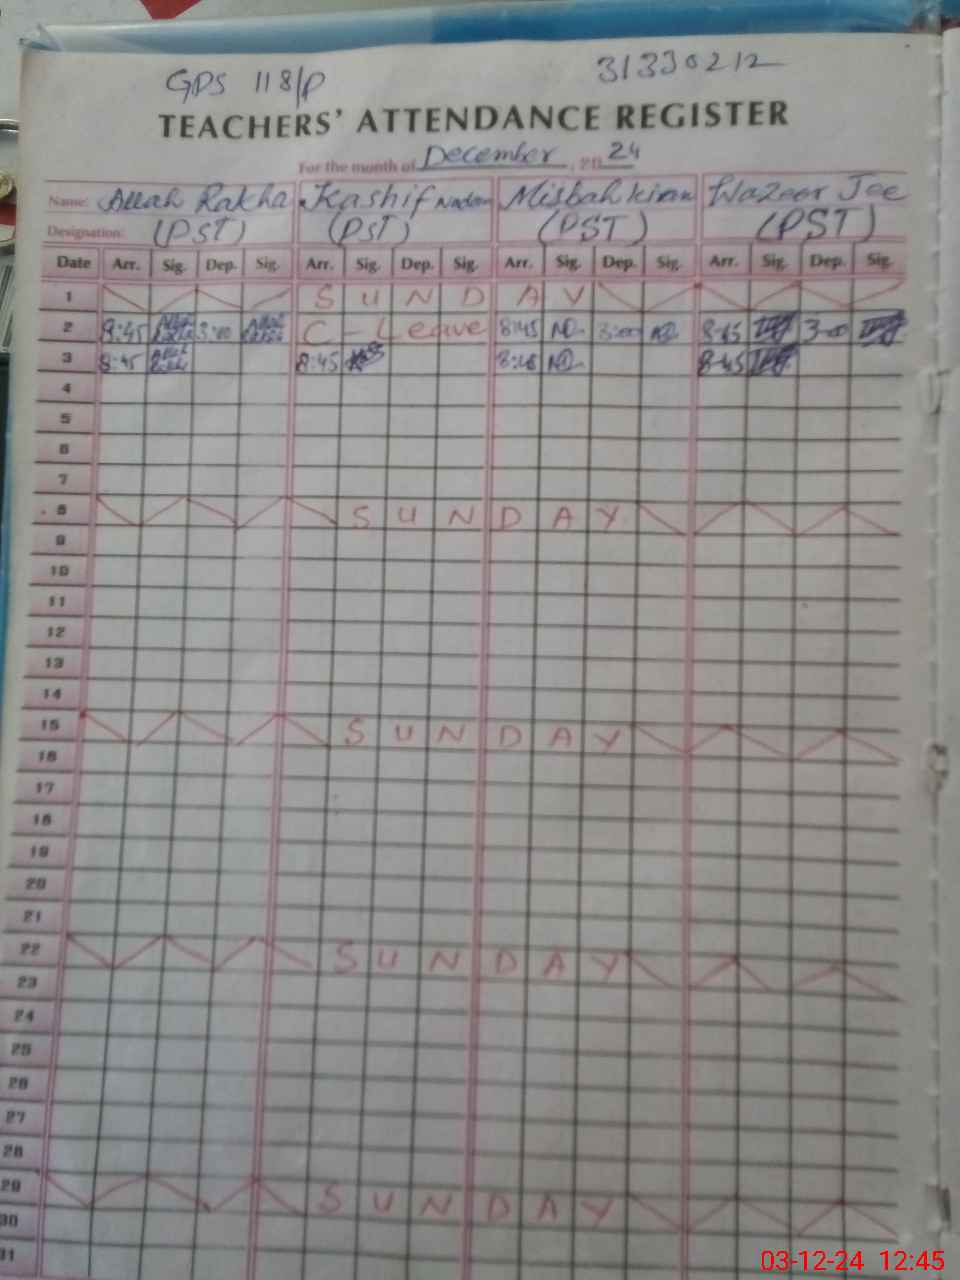 GPS 118/P 31330212
TEACHERS' ATTENDANCE REGISTER
For the month of December, 2024
Name: Allah Rakha Kashif Misbah kiran Wazeer Jee
Designation: (PST) (PST) (PST) (PST)
Date Arr. Sig. Dep. Sig. Arr. Sig. Dep. Sig. Arr. Sig. Dep. Sig. Arr. Sig. Dep. Sig.
1 SUNDAY
2 8:45 3:00 C-Leave 8:45 3:00 8:45 3:00
3 8:45 8:45 8:45
4
5
6
7
8 SUNDAY
9
10
11
12
13
14
15 SUNDAY
16
17
18
19
20
21
22 SUNDAY
23
24
25
26
27
28
29 SUNDAY
30
31
03-12-24 12:45